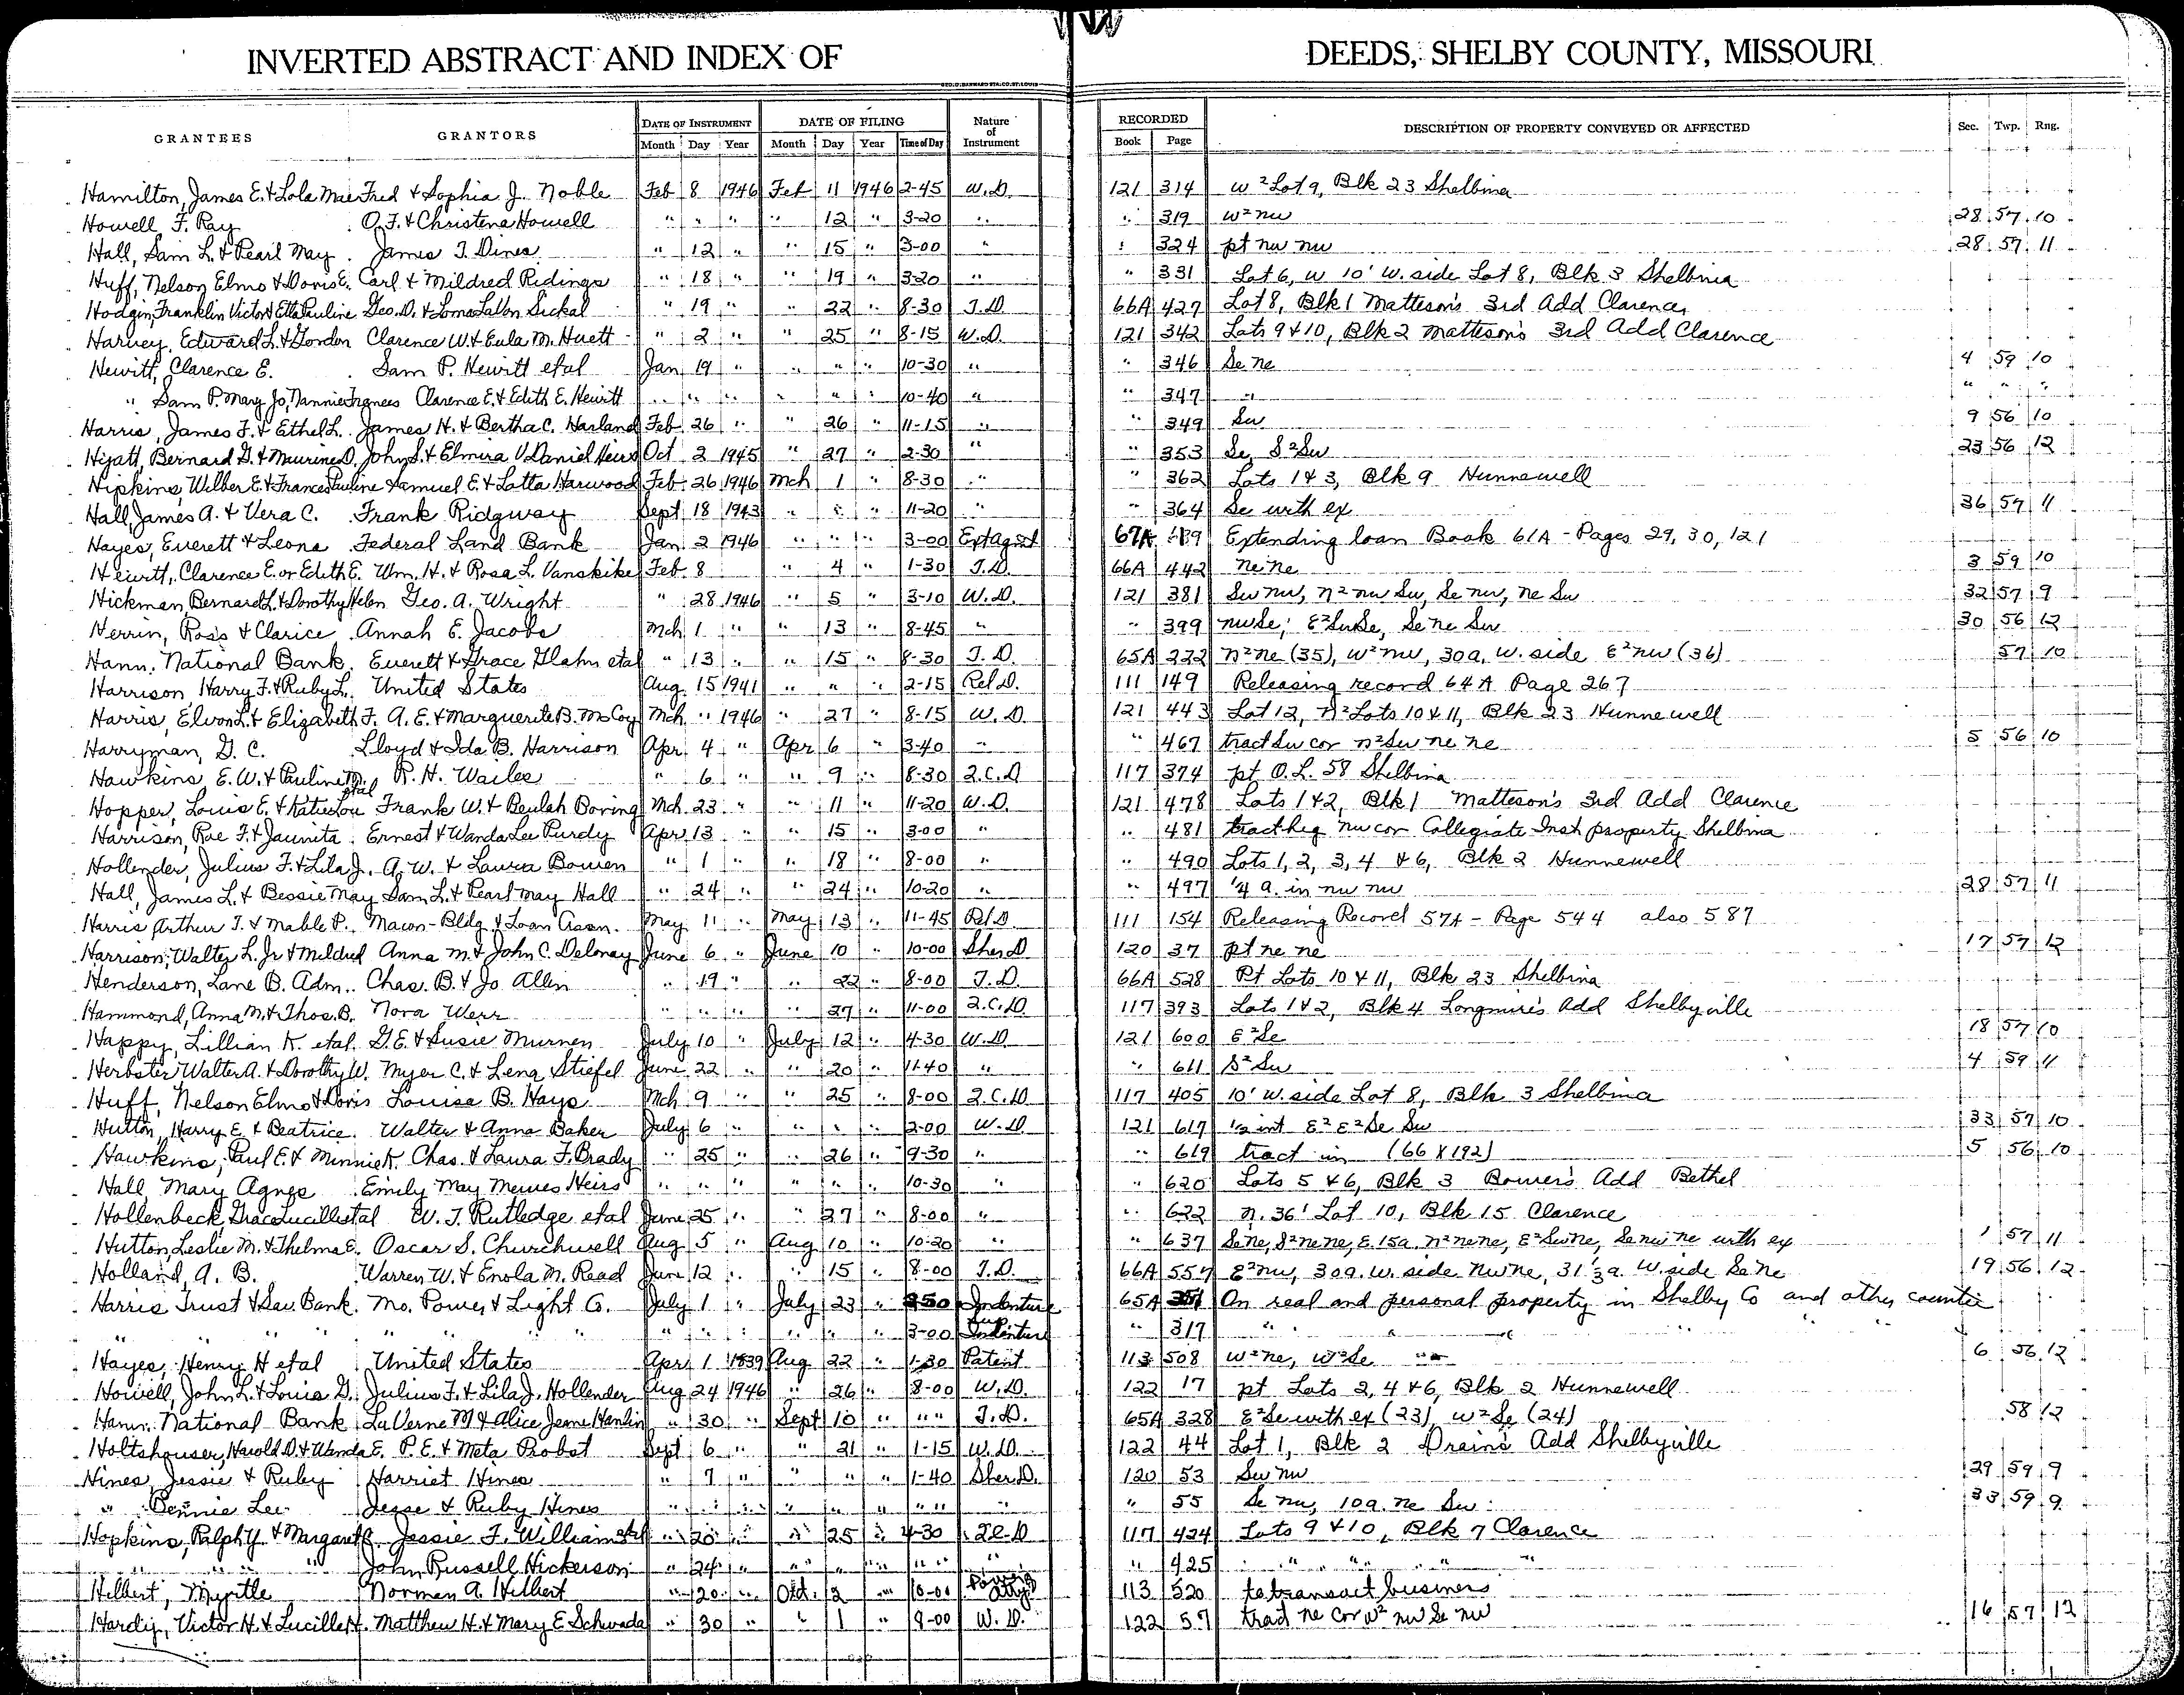 INVERTED ABSTRACT AND INDEX OF DEEDS, SHELBY COUNTY, MISSOURI
GRANTEES GRANTORS DATE OF INSTRUMENT DATE OF FILING Nature of Instrument RECORDED DESCRIPTION OF PROPERTY CONVEYED OR AFFECTED Sec. Twp. Rng.
Month Day Year Month Day Year Time of Day Book Page
Hamilton, James E. & Lola Mae Fred & Sophia J. Noble Feb 8 1946 Feb 11 1946 2-45 W.D. 121 314 W² Lot 9, Blk 23 Shelbina
Howell, F. Ray O.F. & Christena Howell " " " " 12 " 3-20 " " 319 W² nw 28 57 10
Hall, Sam L. & Pearl May James T. Dines " 12 " " 15 " 3-00 " " 324 pt nw nw 28 57 11
Huff, Nelson Elmo & Doris E. Carl & Mildred Ridings " 18 " " 19 " 3-20 " " 331 Lot 6, W 10' W. side Lot 8, Blk 3 Shelbina
Hodgin, Franklin Victor & Etta Pauline Geo. D. & Loma LaVon Sickal " 19 " " 22 " 8-30 T.D. 66A 427 Lot 8, Blk 1 Matteson's 3rd Add Clarence
Harvey, Edward L. & Gordon Clarence W. & Eula M. Huett " 2 " " 25 " 8-15 W.D. 121 342 Lots 9 & 10, Blk 2 Matteson's 3rd Add Clarence
Hewitt, Clarence E. Sam P. Hewitt etal Jan 19 " " " " 10-30 " " 346 Se ne 4 59 10
" Sam P. Mary Jo, Nannie Frances Clarence E. & Edith E. Hewitt " " " " " " 10-40 " " 347 " " " "
Harris, James F. & Ethel L. James H. & Bertha C. Harland Feb 26 " " 26 " 11-15 " " 349 Sw 9 56 10
Hyatt, Bernard G. & Maurine D. John S. & Elmira V. Daniel Heirs Oct 2 1945 " 27 " 2-30 " " 353 Se, S² Sw 23 56 12
Hipkins, Wilber E. & Frances Pauline Samuel E. & Lotta Harwood Feb 26 1946 Mch 1 " 8-30 " " 362 Lots 1 & 3, Blk 9 Hunnewell
Hall, James A. & Vera C. Frank Ridgway Sept 18 1943 " " " 11-20 " " 364 Se with ex 36 57 11
Hayes, Everett & Leona Federal Land Bank Jan 2 1946 " " " 3-00 Ext Agmt 67A 189 Extending loan Book 61A - Pages 29, 30, 121
Hewitt, Clarence E. or Edith E. Wm. H. & Rosa L. Vanskike Feb 8 " 4 " 1-30 T.D. 66A 442 ne ne 3 59 10
Hickman, Bernard L. & Dorothy Helen Geo. A. Wright " 28 1946 " 5 " 3-10 W.D. 121 381 Sw nw, n² nw Sw, Se nw, ne Sw 32 57 9
Herrin, Ross & Clarice Annah E. Jacobs Mch 1 " " 13 " 8-45 " " 399 nw Se, E² Sw Se, Se ne Sw 30 56 12
Hann. National Bank Everett & Grace Glahn etal " 13 " " 15 " 8-30 T.D. 65A 222 n² ne (35), W² nw, 30a, W. side E² nw (36) 57 10
Harrison Harry F. & Ruby L. United States Aug 15 1941 " " " 2-15 Rel D. 111 149 Releasing record 64A Page 267
Harris, Elvon L. & Elizabeth F. A.E. & Marguerite B. McCoy Mch " 1946 " 27 " 8-15 W.D. 121 443 Lot 12, n² Lots 10 & 11, Blk 23 Hunnewell
Harryman, G. C. Lloyd & Ida B. Harrison Apr 4 " Apr 6 " 3-40 " " 467 tract Sw cor n² Sw ne ne 5 56 10
Hawkins, E. W. & Pauline M. etal R. H. Wailes " 6 " " 9 " 8-30 Q.C.D 117 374 pt O.L. 58 Shelbina
Hopper, Louis E. & Katie Lou Frank W. & Beulah Boring Mch 23 " " 11 " 11-20 W.D. 121 478 Lots 1 & 2, Blk 1 Matteson's 3rd Add Clarence
Harrison, Rae F. & Jaunita Ernest & Wanda Lee Purdy Apr 13 " " 15 " 3-00 " " 481 tract beg nw cor Collegiate Inst property Shelbina
Hollender, Julius F. & Lila J. A. W. & Laura Bowen " 1 " " 18 " 8-00 " " 490 Lots 1, 2, 3, 4 & 6, Blk 2 Hunnewell
Hall, James L. & Bessie May Sam L. & Pearl May Hall " 24 " " 24 " 10-20 " " 497 ¼ a. in nw nw 28 57 11
Harris Arthur T. & Mable P. Macon Bldg & Loan Assn. May 11 " May 13 " 11-45 Rel D 111 154 Releasing Record 57A - Page 544 also 587
Harrison, Walter L. Jr & Mildred Anna M. & John C. Delonay June 6 " June 10 " 10-00 Sher D. 120 37 pt ne ne 17 57 12
Henderson, Lane B. Adm. Chas. B. & Jo Allen " 19 " " 22 " 8-00 T.D. 66A 528 Pt Lots 10 & 11, Blk 23 Shelbina
Hammond, Anna M. & Thos. B. Nora Werr " " " " 27 " 11-00 Q.C.D. 117 393 Lots 1 & 2, Blk 4 Longmire's Add Shelbyville
Happy, Lillian K. etal G.E. & Susie Murnen July 10 " July 12 " 4-30 W.D. 121 600 E² Se 18 57 10
Herbster Walter A. & Dorothy W. Myer C. & Lena Stiefel June 22 " " 20 " 11-40 " " 611 S² Sw 4 59 11
Huff, Nelson Elmo & Doris Louise B. Hays Mch 9 " " 25 " 8-00 Q.C.D. 117 405 10' W. side Lot 8, Blk 3 Shelbina
Hutton, Harry E. & Beatrice Walter & Anna Baker July 6 " " " " 2-00 W.D. 121 617 ½ int E² E² Se Sw 33 57 10
Hawkins, Paul E. & Minnie K. Chas. & Laura F. Brady " 25 " " 26 " 9-30 " " 619 tract in (66 X 192) 5 56 10
Hall, Mary Agnes Emily May Mewes Heirs " " " " " " 10-30 " " 620 Lots 5 & 6, Blk 3 Bower's Add Bethel
Hollenbeck, Grace Lucille etal W. T. Rutledge etal June 25 " " 27 " 8-00 " " 622 n. 36' Lot 10, Blk 15 Clarence
Hutton, Leslie M. & Thelma E. Oscar S. Churchwell Aug 5 " Aug 10 " 10-20 " " 637 Se ne, S² ne ne, E. 15a. n² ne ne, E² Sw ne, Se nw ne with ex 1 57 11
Holland, A. B. Warren W. & Enola M. Read June 12 " " 15 " 8-00 T.D. 66A 557 E² nw, 30a. W. side nw ne, 31⅓ a. W. side Se ne 19 56 12
Harris Trust & Sav. Bank Mo. Power & Light Co. July 1 " July 23 " 250 Indenture 65A 351 On real and personal property in Shelby Co and other countie
" " " " " " " " " " " " " " 3-00 Sup Indenture " 317 " " " " "
Hayes, Henry H etal United States Apr 1 1839 Aug 22 " 1-30 Patent 113 508 W² ne, W² Se 6 56 12
Howell, John L. & Louis G. Julius F. & Lila J. Hollender Aug 24 1946 " 26 " 8-00 W.D. 122 17 pt Lots 2, 4 & 6, Blk 2 Hunnewell
Hann. National Bank LaVerne M & Alice Jeane Hanlin " 30 " Sept 10 " " " T.D. 65A 328 E² Se with ex (23), W² Se (24) 58 12
Holtshouser, Harold D. & Wanda E. P. E. & Meta Probst Sept 6 " " 21 " 1-15 W.D. 122 44 Lot 1, Blk 2 Drain's Add Shelbyville
Hines, Jessie & Ruby Harriet Hines " 7 " " " " 1-40 Sher D. 120 53 Sw nw 29 59 9
" Bennie Lee Jesse & Ruby Hines " " " " " " " " " " 55 Se nw, 10a. ne Sw 33 59 9
Hopkins, Ralph Y. & Margaret Jessie F. Williams etal " 20 " " 25 " 4-30 Q.C.D 117 424 Lots 9 & 10, Blk 7 Clarence
" " " John Russell Hickerson " 24 " " " " " " " " 425 " " " " "
Hilbert, Myrtle Norman A. Hilbert " 20 " Oct. 2 " 10-00 Pow'g Atty 113 520 to transact business
Hardy, Victor H. & Lucille H. Matthew H. & Mary E Schwada " 30 " " 1 " 9-00 W.D. 122 57 tract ne cor W² nw Se nw 16 57 12